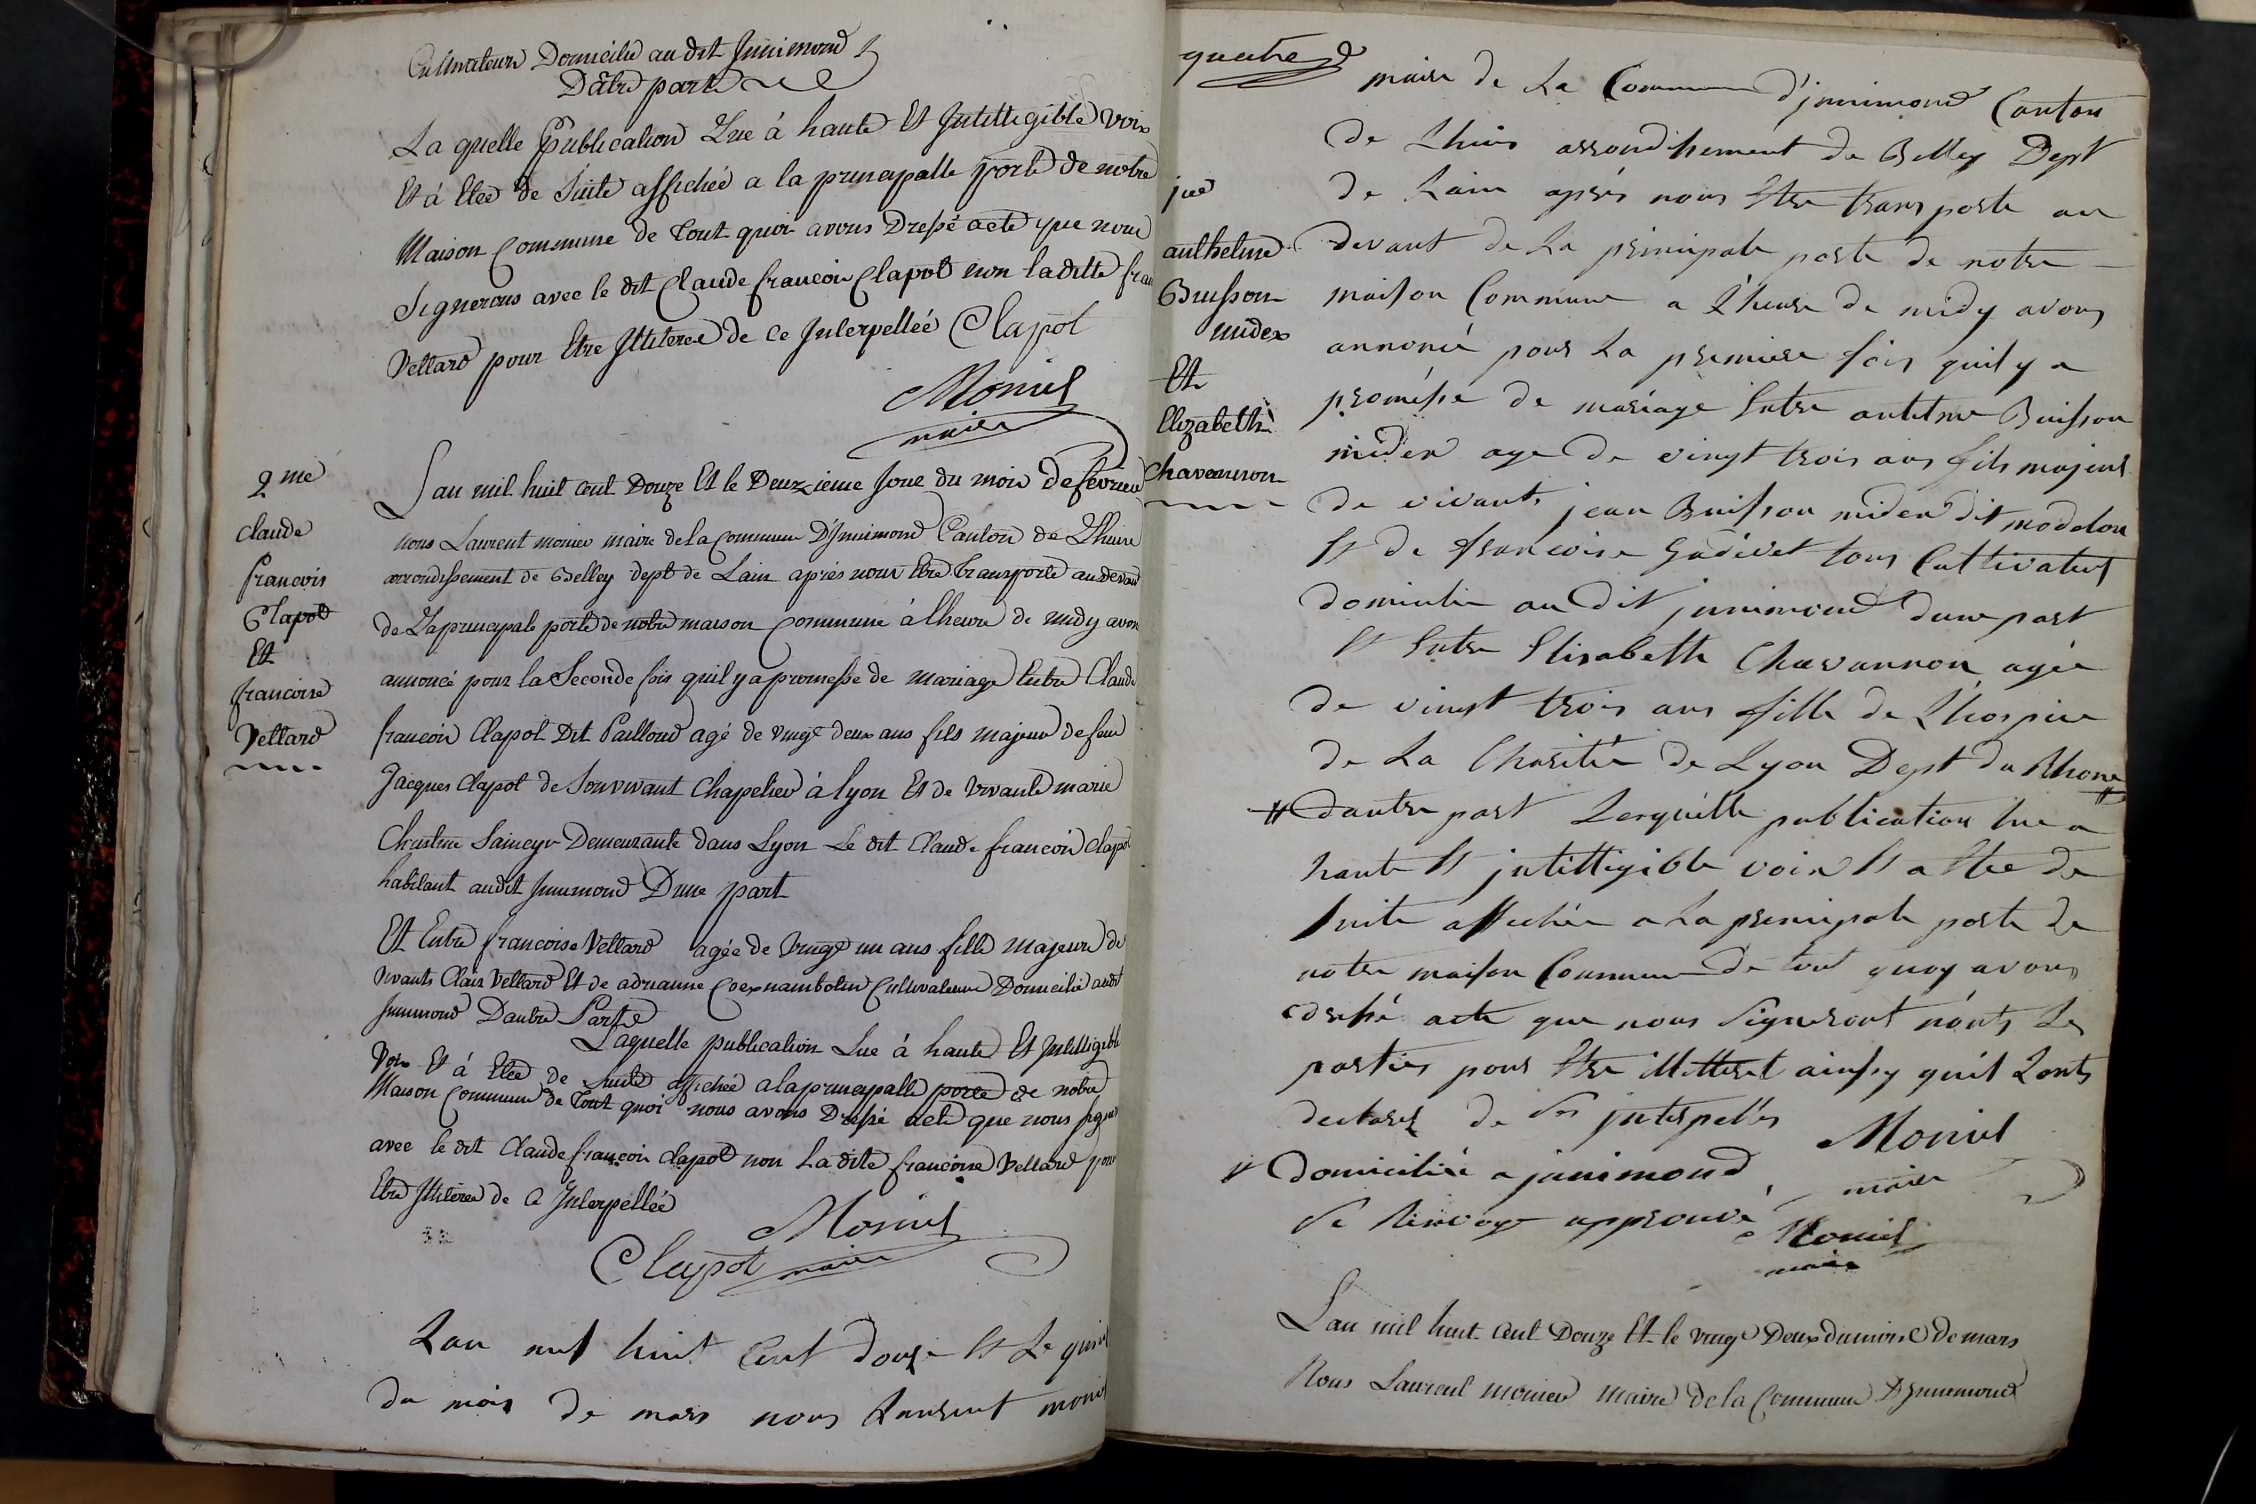 Cultivateurs Domicilié au dit Innimond
Dautre part
La quelle Publication Lue à haute Et Intelligible voix
Et à Etée de Suite affichée a la principalle porte de notre
Maison Commune de Tout quoi avons Dressé acte que nous
Signerons avec le dit Claude francois Clapot non laditte fran
Vettard pour Etre Illiterée de ce Interpellée Clapot
Monier
maire
2me
Claude
francois
Clapot
Et
francoise
Vettard
Lan mil huit cent Douze Et le Deuxieme Jour du mois de fevrier
nous Laurent monier maire de la Commune D'Innimond Canton de Lhuire
arrondissement de Belley dept de Lain après nous Etre Transporté au devant
de La principale porte de notre maison Commune à lheure de midy avons
annoncé pour la Seconde fois quil y a promesse de mariage Entre Claude
francois Clapot Dit Pailloud agé de vingt deux ans fils majeur de feu
Jacques Clapot de Son vivant Chapelier à lyon Et de vivante marie
Demeurante dans Lyon Le dit Claude francois Clapot
habitant audit Innimond Dune part
Et Entre francoise Vettard agée de vingt un ans fille Majeure de
vivants Clair Vettard Et de adrianne Cultivateurs Domicilié audit
Innimond Dautre Parte
Laquelle publication Lue à haute Et Intelligible
Voix Et à Etée de Suite affichée a la principalle porte de notre
Maison Commune de Tout quoi nous avons Dressé acte que nous signer
avec le dit Claude francois Clapot non La dite francoise Vettard pour
Etre Illiterée de ce Interpellée
Monier
Clapot maire
Lan mil huit Cent douze Et Le quin
du mois de mars nous Laurent monier
quatre
maire de La Commune d'jnnimond Canton
de Lhuis arrondissement de Belley Dept
de Lain après nous Etre transporte au
devant de La principale porte de notre
maison Commune a L'heure de midy avons
annoncé pour La premiere fois quil y a
promesse de mariage Entre antelme Buisson
midex age de vingt trois ans fils majeur
de vivants jean Buisson midex dit modelon
Et de francoise tous Cultivateurs
domicilie au dit jnnimond dune part
Et Entre Elisabeth Chavannon agée
de vingt trois ans fille de L'hospice
de La Charitée de Lyon Dept du Rhone
dautre part Lesquelle publication lue a
haute Et jntelligible voix Et a Etee de
suite affichée a La principale porte de
notre maison Commune de tout quoy avons
dressé acte que nous Signeront nonts Les
parties pour Etre illitteret ainsy quil Lonts
declarez de jnterpellés Monier
maire
domiciliée a jnnimond
Le Renvoye approuvé Monier
maire
1re
anthelme
Buisson
midex
Et
Elizabeth
Chavannon
Lan mil huit cent Douze Et le vingt Deux du mois De mars
Nous Laurent monier Maire de la Commune D'Innimond